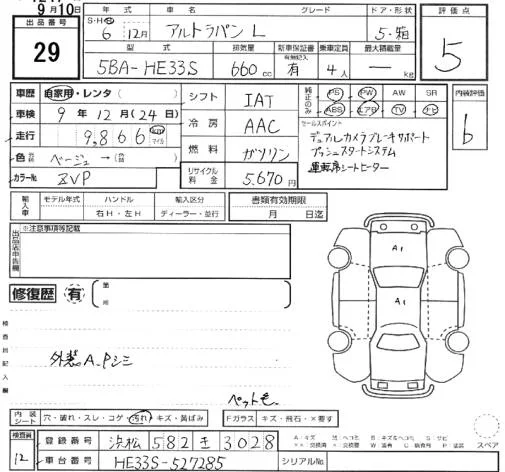 9月10日
出品番号
29
年式 車名 グレード ドア・形状 評価点
S・H 6年 12月 アルトラパン L 5・箱 5
型式 排気量 新車保証書 有無記入 乗車定員 最大積載量
5BA-HE33S 660cc 有 4人 — kg
車歴 自家用・レンタ( )
車検 9年12月(24日)
走行 9,866 km マイル
色 外装 ベージュ→( ) 内装
カラーNo. ZVP
シフト IAT
冷房 AAC
燃料 ガソリン
リサイクル料金 5,670円
純正のみ PS PW AW SR
ABS エアB TV ナビ
セールスポイント
デュアルカメラブレーキサポート
プッシュスタートシステム
運転席シートヒーター
内装評価
b
輸入車 モデル年式 ハンドル 輸入区分 書類有効期限
右H・左H ディーラー・並行 月 日迄
出品店申告欄 ※注意事項等記載
修復歴 有 箇所
A1
A1
検査員記入欄
外装A.Pシミ
ペット毛
内装シート 穴・破れ・スレ・コゲ・汚れ・キズ・黄ばみ Fガラス キズ・飛石・×要す
検査員
12
登録番号 浜松 582 き 3028
車台番号 HE33S-527285 シリアルNo.
スペア